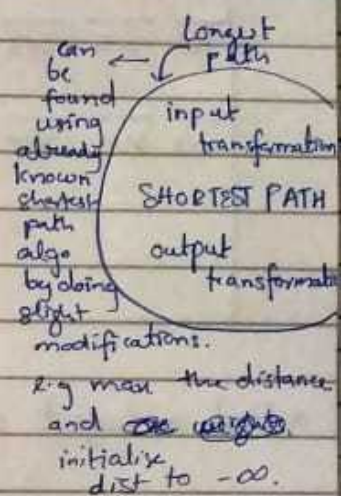 Longest
path
can
be
found
using
already
known
shortest
path
algo
by doing
slight
modifications.
input
transformation
SHORTEST PATH
output
transformati
e.g max the distance
and
initialise
dist to -∞.